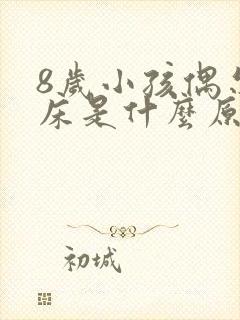 8歲小孩偶
床是什麼原
初城